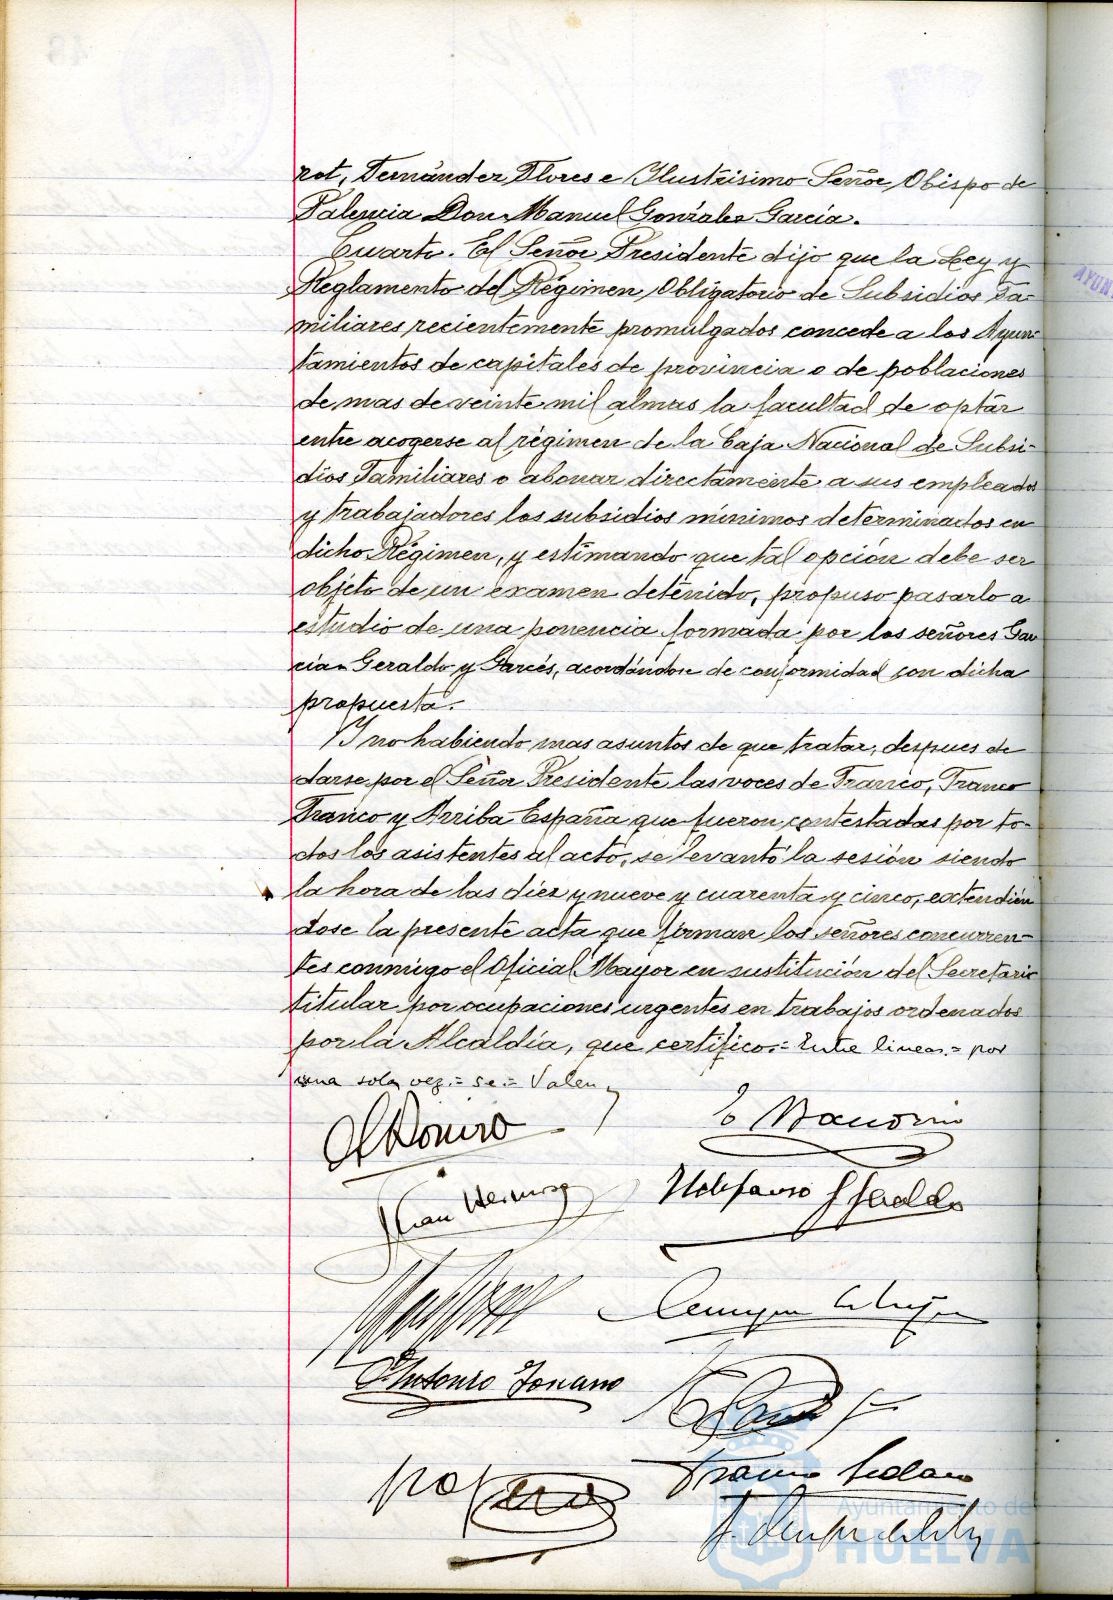 rot, Fernández Flores e Ilustrisimo Señor Obispo de
Palencia Don Manuel Gonzalez García.
Cuarto. El Señor Presidente dijo que la Ley y
Reglamento del Régimen Obligatorio de Subsidios Fa-
miliares recientemente promulgados concede a los Ayun-
tamientos de capitales de provincia o de poblaciones
de mas de veinte mil almas la facultad de optar
entre acogerse al régimen de la Caja Nacional de Subsi-
dios Familiares o abonar directamente a sus empleados
y trabajadores los subsidios mínimos determinados en
dicho Régimen, y estimando que tal opción debe ser
objeto de un examen detenido, propuso pasarlo a
estudio de una ponencia formada por los señores Gar
cia Geraldo y Garcés, acordándose de conformidad con dicha
propuesta.
Y no habiendo mas asuntos de que tratar, despues de
darse por el Señor Presidente las voces de Franco, Franco
Franco y Arriba España que fueron contestadas por to-
dos los asistentes al acto, se levantó la sesión siendo
la hora de las diez y nueve y cuarenta y cinco, extendién
dose la presente acta que firman los señores concurren-
tes conmigo el Oficial Mayor en sustitución del Secretario
titular por ocupaciones urgentes en trabajos ordenados
por la Alcaldía, que certifico.= Entre lineas.= por
una sola vez.= se.= Valen
Ildefonso
Antonio
Ayuntamiento de
HUELVA